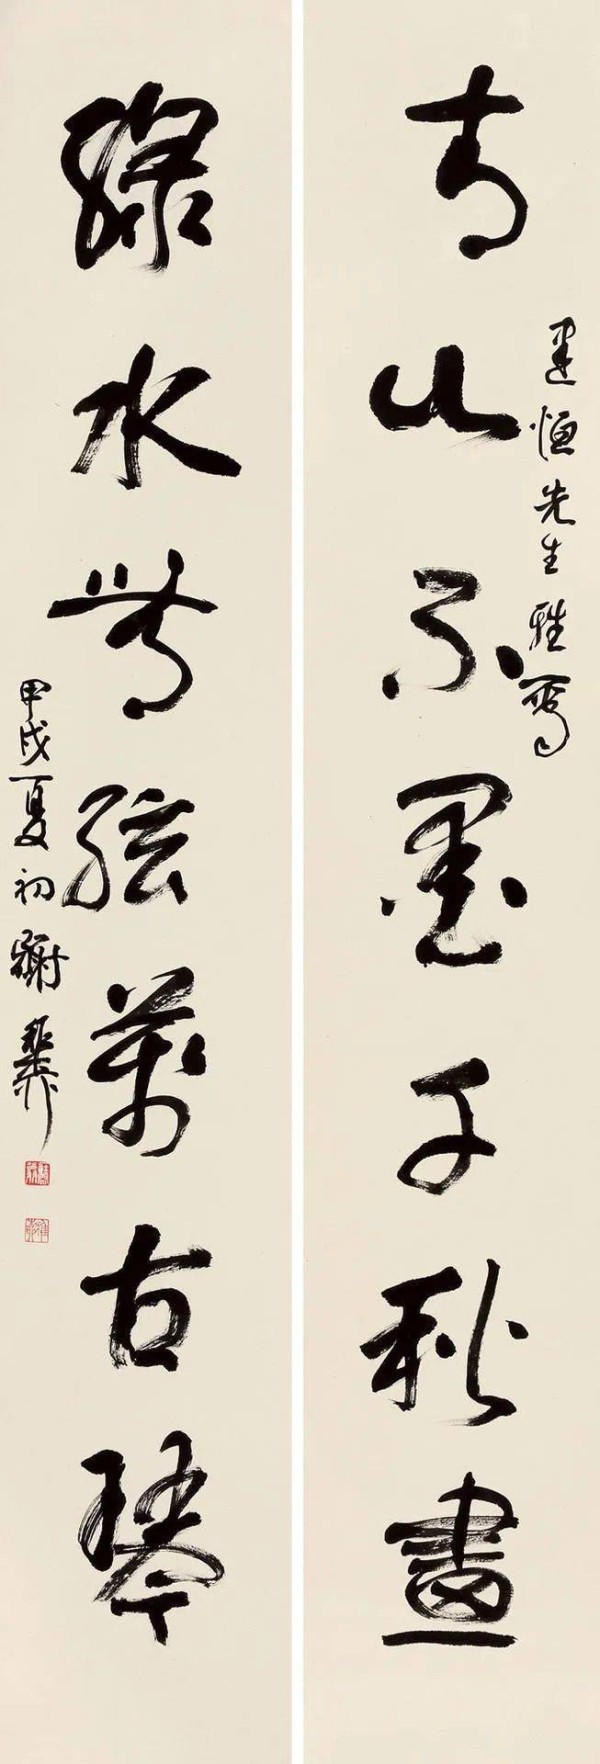 青山不墨千秋畫
建恆先生雅屬
綠水無弦萬古琴
甲戌夏初謝